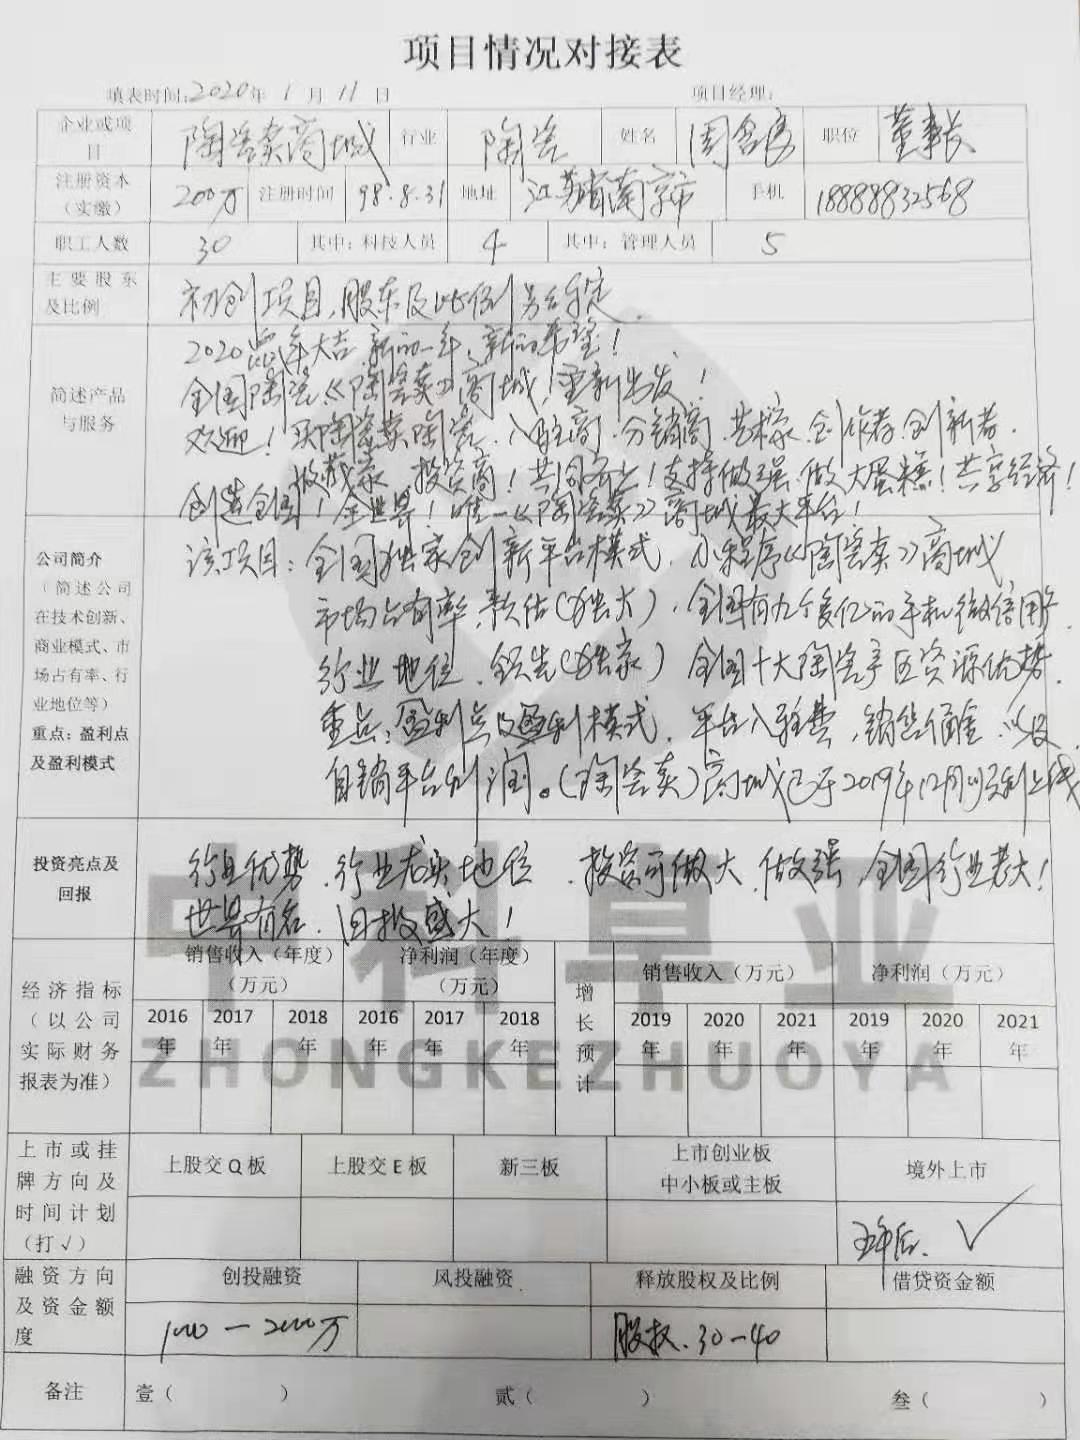 项目情况对接表
填表时间:2020年1月11日 项目经理:
企业或项目 陶瓷卖商城 行业 陶瓷 姓名 周 职位 董事长
注册资本（实缴） 200万 注册时间 98.8.31 地址 江苏省南京市 手机 18888832568
职工人数 30 其中: 科技人员 4 其中: 管理人员 5
主要股东及比例 初创项目,股东及比例另行定
简述产品与服务
2020鼠年大吉.新的一年,新的希望!
全国陶瓷《陶瓷卖》商城!重新出发!
欢迎!买陶瓷卖陶瓷.入驻商.分销商.艺术家.创作者.创新者.
收藏家 投资商!共同富!支持做强.做大蛋糕!共享经济!
创造全国!全世界!唯一《陶瓷卖》商城最大平台!
公司简介
（简述公司在技术创新、商业模式、市场占有率、行业地位等）
重点: 盈利点及盈利模式
该项目:全国独家创新平台模式.小程序《陶瓷卖》商城
市场占有率.预估(独大).全国有九个多亿的手机微信用户
行业地位.领先(独家) 全国十大陶瓷产区资源优势.
重点:盈利点及盈利模式.平台入驻费,销售佣金.以及
自销平台利润。(陶瓷卖)商城已于2019年12月顺利上线
投资亮点及回报
行业优势.行业龙头地位.投资可做大.做强.全国行业老大!
世界有名.回报盛大!
中科卓业
ZHONGKEZHUOYA
经济指标（以公司实际财务报表为准） 销售收入（年度）（万元） 净利润（年度）（万元） 增长预计 销售收入（万元） 净利润（万元）
2016年 2017年 2018年 2016年 2017年 2018年 2019年 2020年 2021年 2019年 2020年 2021年
上市或挂牌方向及时间计划（打√） 上股交Q板 上股交E板 新三板 上市创业板中小板或主板 境外上市
五年后. √
融资方向及资金额度 创投融资 风投融资 释放股权及比例 借贷资金额
1000—2000万 股权.30—40
备注 壹（ ） 贰（ ） 叁（ ）